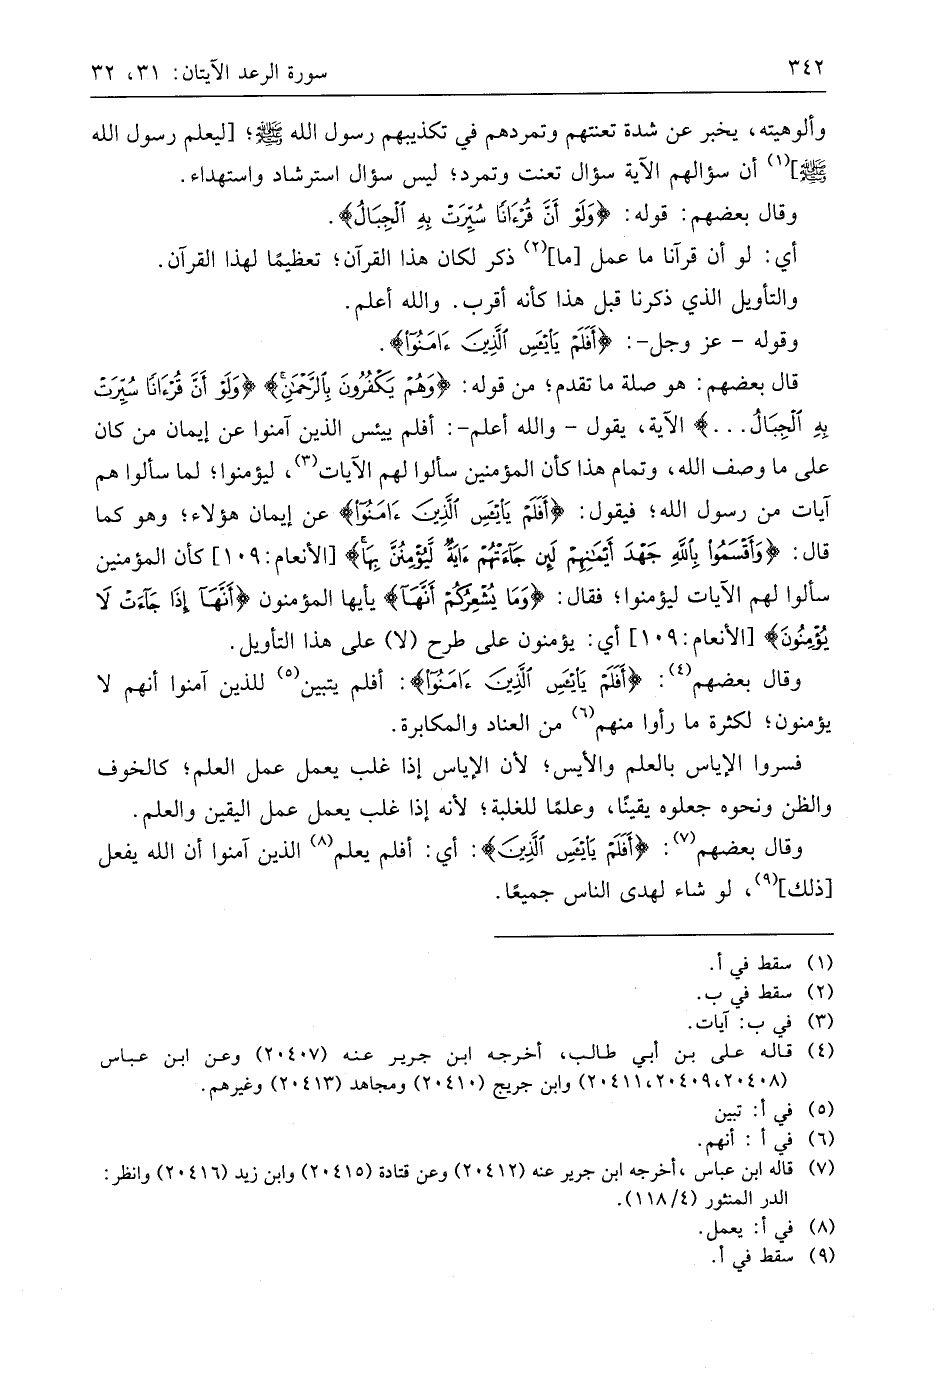 ٣٤٢
سورة الرعد الآيتان: ٣١، ٣٢
وألوهيته، يخبر عن شدة تعنتهم وتمردهم في تكذيبهم رسول الله ﷺ؛ [ليعلم رسول الله
ﷺ](١) أن سؤالهم الآية سؤال تعنت وتمرد؛ ليس سؤال استرشاد واستهداء.
وقال بعضهم: قوله: ﴿وَلَوْ أَنَّ قُرْءَانًا سُيِّرَتْ بِهِ ٱلْجِبَالُ﴾.
أي: لو أن قرآنا ما عمل [ما](٢) ذكر لكان هذا القرآن؛ تعظيمًا لهذا القرآن.
والتأويل الذي ذكرنا قبل هذا كأنه أقرب. والله أعلم.
وقوله - عز وجل-: ﴿أَفَلَمْ يَاْيْـَٔسِ ٱلَّذِينَ ءَامَنُوٓاْ﴾.
قال بعضهم: هو صلة ما تقدم؛ من قوله: ﴿وَهُمْ يَكْفُرُونَ بِٱلرَّحْمَٰنِ﴾ ﴿وَلَوْ أَنَّ قُرْءَانًا سُيِّرَتْ
بِهِ ٱلْجِبَالُ...﴾ الآية، يقول - والله أعلم-: أفلم ييئس الذين آمنوا عن إيمان من كان
على ما وصف الله، وتمام هذا كأن المؤمنين سألوا لهم الآيات(٣)، ليؤمنوا؛ لما سألوا هم
آيات من رسول الله؛ فيقول: ﴿أَفَلَمْ يَاْيْـَٔسِ ٱلَّذِينَ ءَامَنُوٓاْ﴾ عن إيمان هؤلاء؛ وهو كما
قال: ﴿وَأَقْسَمُواْ بِٱللَّهِ جَهْدَ أَيْمَٰنِهِمْ لَئِن جَآءَتْهُمْ ءَايَةٌ لَّيُؤْمِنُنَّ بِهَا﴾ [الأنعام: ١٠٩] كأن المؤمنين
سألوا لهم الآيات ليؤمنوا؛ فقال: ﴿وَمَا يُشْعِرُكُمْ أَنَّهَآ﴾ يأيها المؤمنون ﴿أَنَّهَآ إِذَا جَآءَتْ لَا
يُؤْمِنُونَ﴾ [الأنعام: ١٠٩] أي: يؤمنون على طرح (لا) على هذا التأويل.
وقال بعضهم(٤): ﴿أَفَلَمْ يَاْيْـَٔسِ ٱلَّذِينَ ءَامَنُوٓاْ﴾: أفلم يتبين(٥) للذين آمنوا أنهم لا
يؤمنون؛ لكثرة ما رأوا منهم(٦) من العناد والمكابرة.
فسروا الإياس بالعلم والأيس؛ لأن الإياس إذا غلب يعمل عمل العلم؛ كالخوف
والظن ونحوه جعلوه يقينًا، وعلمًا للغلبة؛ لأنه إذا غلب يعمل عمل اليقين والعلم.
وقال بعضهم(٧): ﴿أَفَلَمْ يَاْيْـَٔسِ ٱلَّذِينَ﴾: أي: أفلم يعلم(٨) الذين آمنوا أن الله يفعل
[ذلك](٩)، لو شاء لهدى الناس جميعًا.
(١) سقط في أ.
(٢) سقط في ب.
(٣) في ب: آيات.
(٤) قاله على بن أبي طالب، أخرجه ابن جرير عنه (٢٠٤٠٧) وعن ابن عباس
(٢٠٤٠٨، ٢٠٤٠٩، ٢٠٤١١) وابن جريج (٢٠٤١٠) ومجاهد (٢٠٤١٣) وغيرهم.
(٥) في أ: تبين
(٦) في أ : أنهم.
(٧) قاله ابن عباس ،أخرجه ابن جرير عنه (٢٠٤١٢) وعن قتادة (٢٠٤١٥) وابن زيد (٢٠٤١٦) وانظر:
الدر المنثور (٤/١١٨).
(٨) في أ: يعمل.
(٩) سقط في أ.